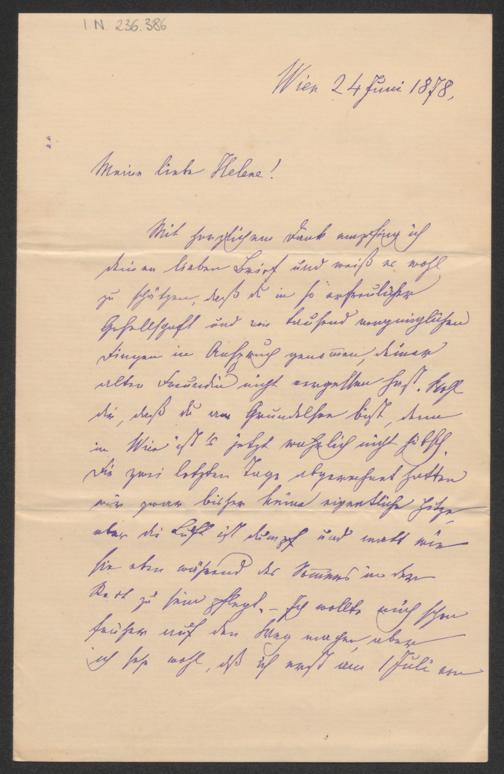 I N. 236.386
Wien 24 Juni 1878,
Meine liebe Helene!
Mit herzlichem Dank empfing ich
deinen lieben Brief und weiß es wohl
zu schätzen, daß du in so erfreulicher
Gesellschaft und von tausend vergnüglichen
Dingen in Anspruch genommen deiner
alten Freundin nicht vergessen hast. Wohl
dir, daß du am Grundelsee bist, denn
in Wien ist's jetzt wahrlich nicht hübsch.
Die zwei letzten Tage abgerechnet hatten
wir zwar bisher keine eigentliche Hitze,
aber die Luft ist dumpf und matt wie
sie eben während des Sommers in der
Stadt zu sein pflegt. – Ich wollte mich schon
früher auf den Weg machen, aber
ich sehe wohl, daß ich erst am 1 Juli von